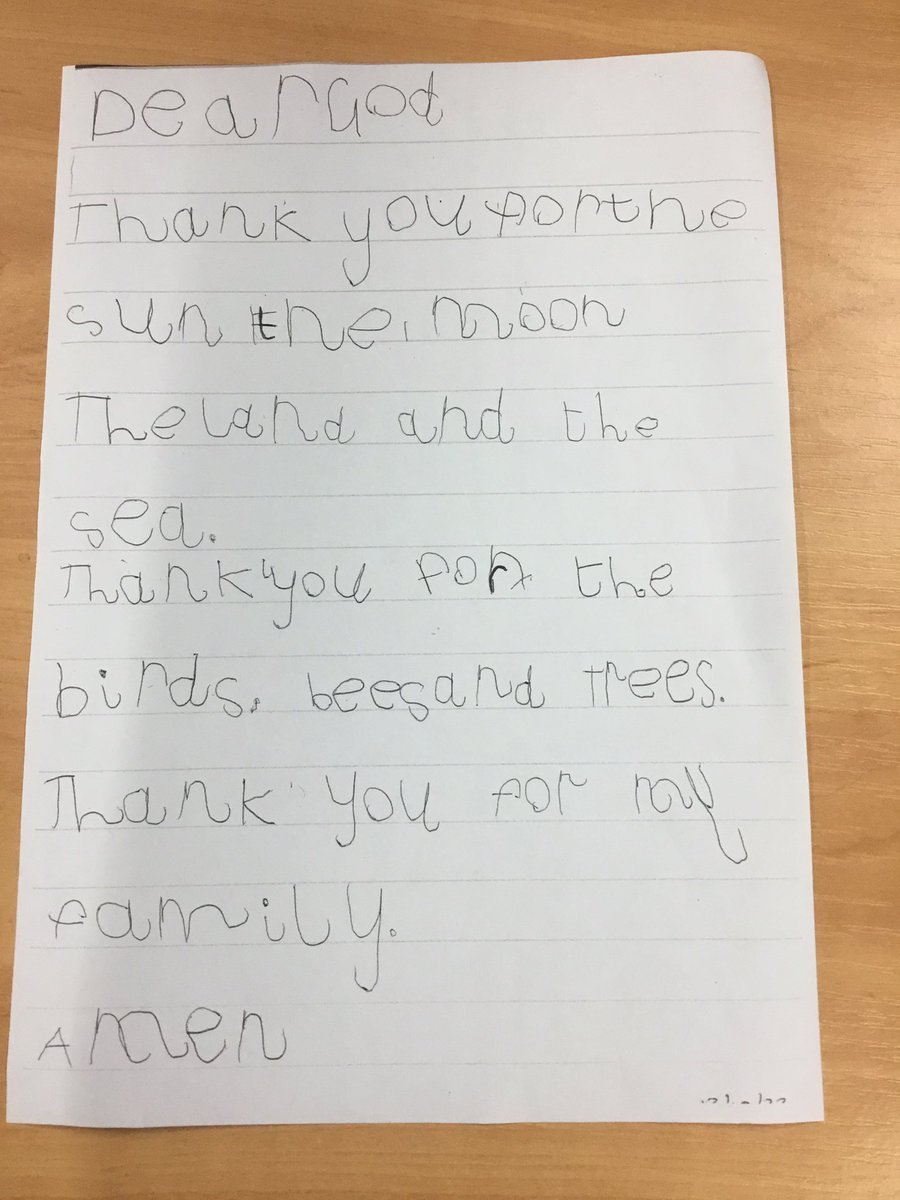 Dear God
Thank you for the
sun the, moon
The land and the
sea.
Thank you for the
birds, bees and trees.
Thank you for my
family.
Amen